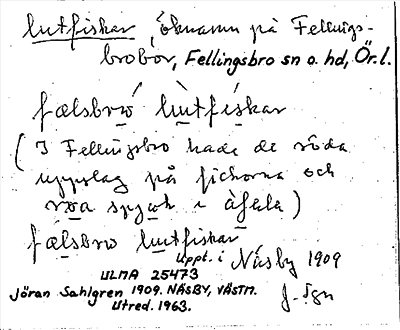 lutfiskar, öknamn på Fellings-
brobor, Fellingsbro sn o. hd, Ör.l.
fælsbrὼ lùtfískar
(I Fellingsbro hade de röda
uppslag på fickorna och
röa i àfala)
fælsbrω lutfiskar
Uppt. i Näsby 1909
ULMA 25473
Jöran Sahlgren 1909. NÄSBY, VÄSTM.
Utred. 1963.
J. Sgn